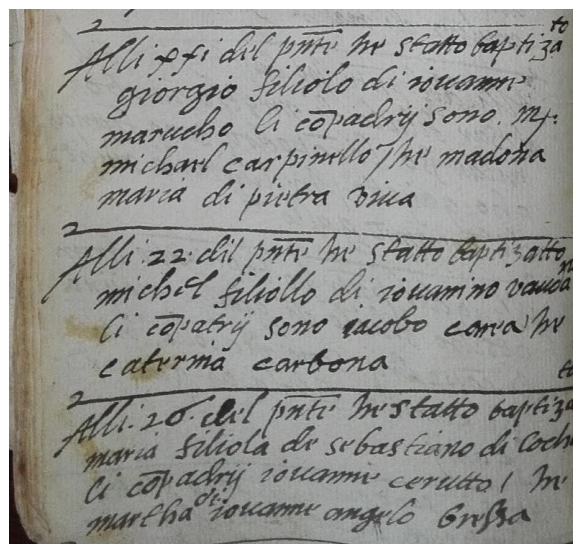 Alli xxi del pñte he statto baptiza to
giorgio filiolo di iouanne
marucho li cõpadrij sono. mr:
michael carpinello / he madoña
maria di pietra viva
Alli .22. dil pñte he statto baptizatto
michel filiollo di iouannino
li cõpatrij sono iacobo corea he
caterina carbona
Alli .26. del pñte he statto baptiza
maria filiola de sebastiano di coch
li cõpadrij iouanne cerutto / he
martha de iouanne angelo bressa